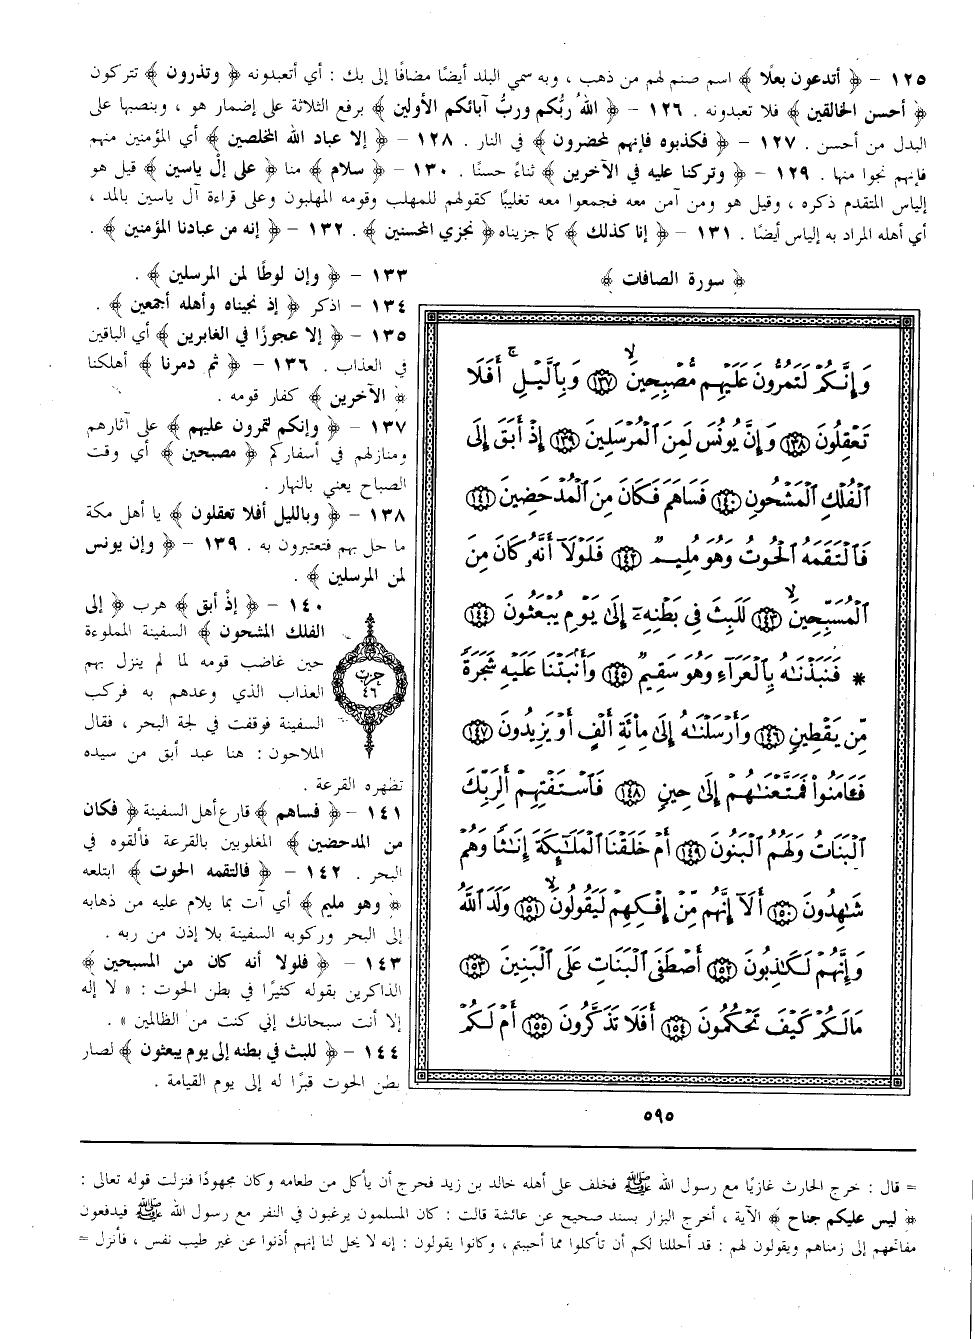 ١٢٥ – ﴿ أتدعون بعلًا ﴾ اسم صنم لهم من ذهب ، وبه سمي البلد أيضًا مضافًا إلى بك : أي أتعبدونه ﴿ وتذرون ﴾ تتركون
﴿ أحسن الخالقين ﴾ فلا تعبدونه . ١٢٦ – ﴿ اللهُ ربُّكم وربُّ آبائكم الأولين ﴾ برفع الثلاثة على إضمار هو ، وبنصبها على
البدل من أحسن . ١٢٧ – ﴿ فكذبوه فإنهم لمحضرون ﴾ في النار . ١٢٨ – ﴿ إلا عباد الله المخلصين ﴾ أي المؤمنين منهم
فإنهم نجوا منها . ١٢٩ – ﴿ وتركنا عليه في الآخرين ﴾ ثناءً حسنًا . ١٣٠ – ﴿ سلام ﴾ منا ﴿ على إلْ ياسين ﴾ قيل هو
إلياس المتقدم ذكره ، وقيل هو ومن آمن معه فجمعوا معه تغليبًا كقولهم للمهلب وقومه المهلبون وعلى قراءة آل ياسين بالمد ،
أي أهله المراد به إلياس أيضًا . ١٣١ – ﴿ إنا كذلك ﴾ كما جزيناه ﴿ نجزي المحسنين ﴾ . ١٣٢ – ﴿ إنه من عبادنا المؤمنين ﴾ .
﴿ سورة الصافات ﴾
وَإِنَّكُمْ لَتَمُرُّونَ عَلَيْهِم مُّصْبِحِينَ ۙ ١٣٧ وَبِالَّيْلِ ۚ أَفَلَا
تَعْقِلُونَ ١٣٨ وَإِنَّ يُونُسَ لَمِنَ الْمُرْسَلِينَ ١٣٩ إِذْ أَبَقَ إِلَى
الْفُلْكِ الْمَشْحُونِ ١٤٠ فَسَاهَمَ فَكَانَ مِنَ الْمُدْحَضِينَ ١٤١
فَالْتَقَمَهُ الْحُوتُ وَهُوَ مُلِيمٌ ١٤٢ فَلَوْلَآ أَنَّهُۥ كَانَ مِنَ
الْمُسَبِّحِينَ ۙ ١٤٣ لَلَبِثَ فِى بَطْنِهِۦٓ إِلَىٰ يَوْمِ يُبْعَثُونَ ١٤٤
* فَنَبَذْنَٰهُ بِالْعَرَآءِ وَهُوَ سَقِيمٌ ١٤٥ وَأَنۢبَتْنَا عَلَيْهِ شَجَرَةً
مِّن يَقْطِينٍ ١٤٦ وَأَرْسَلْنَٰهُ إِلَىٰ مِا۟ئَةِ أَلْفٍ أَوْ يَزِيدُونَ ١٤٧
فَـَٔامَنُوا فَمَتَّعْنَٰهُمْ إِلَىٰ حِينٍ ١٤٨ فَاسْتَفْتِهِمْ أَلِرَبِّكَ
الْبَنَاتُ وَلَهُمُ الْبَنُونَ ١٤٩ أَمْ خَلَقْنَا الْمَلَٰٓئِكَةَ إِنَٰثًا وَهُمْ
شَٰهِدُونَ ١٥٠ أَلَآ إِنَّهُم مِّنْ إِفْكِهِمْ لَيَقُولُونَ ۙ ١٥١ وَلَدَ اللَّهُ
وَإِنَّهُمْ لَكَٰذِبُونَ ١٥٢ أَصْطَفَى الْبَنَاتِ عَلَى الْبَنِينَ ١٥٣
مَالَكُمْ كَيْفَ تَحْكُمُونَ ١٥٤ أَفَلَا تَذَكَّرُونَ ١٥٥ أَمْ لَكُمْ
١٣٣ – ﴿ وإن لوطًا لمن المرسلين ﴾ .
١٣٤ – اذكر ﴿ إذ نجيناه وأهله أجمعين ﴾ .
١٣٥ – ﴿ إلا عجوزًا في الغابرين ﴾ أي الباقين
في العذاب . ١٣٦ – ﴿ ثم دمرنا ﴾ أهلكنا
﴿ الآخرين ﴾ كفار قومه .
١٣٧ – ﴿ وإنكم لتمرون عليهم ﴾ على آثارهم
ومنازلهم في أسفاركم ﴿ مصبحين ﴾ أي وقت
الصباح يعني بالنهار .
١٣٨ – ﴿ وبالليل أفلا تعقلون ﴾ يا أهل مكة
ما حل بهم فتعتبرون به . ١٣٩ – ﴿ وإن يونس
لمن المرسلين ﴾ .
١٤٠ – ﴿ إذْ أبق ﴾ هرب ﴿ إلى
الفلك المشحون ﴾ السفينة المملوءة
حين غاضب قومه لما لم ينزل بهم
العذاب الذي وعدهم به فركب
السفينة فوقفت في لجة البحر ، فقال
الملاحون : هنا عبد أبق من سيده
تظهره القرعة .
حزب
٤٦
١٤١ – ﴿ فساهم ﴾ قارع أهل السفينة ﴿ فكان
من المدحضين ﴾ المغلوبين بالقرعة فألقوه في
البحر . ١٤٢ – ﴿ فالتقمه الحوت ﴾ ابتلعه
﴿ وهو مليم ﴾ أي آت بما يلام عليه من ذهابه
إلى البحر وركوبه السفينة بلا إذن من ربه .
١٤٣ – ﴿ فلولا أنه كان من المسبحين ﴾
الذاكرين بقوله كثيرًا في بطن الحوت : « لا إله
إلا أنت سبحانك إني كنت من الظالمين » .
١٤٤ – ﴿ للبث في بطنه إلى يوم يبعثون ﴾ لصار
بطن الحوت قبرًا له إلى يوم القيامة .
٥٩٥
= قال : خرج الحارث غازيًا مع رسول الله ﷺ فخلف على أهله خالد بن زيد فحرج أن يأكل من طعامه وكان مجهودًا فنزلت قوله تعالى :
﴿ ليس عليكم جناح ﴾ الآية ، أخرج البزار بسند صحيح عن عائشة قالت : كان المسلمون يرغبون في النفر مع رسول الله ﷺ فيدفعون
مفاتحهم إلى زمناهم ويقولون لهم : قد أحللنا لكم أن تأكلوا مما أحببتم ، وكانوا يقولون : إنه لا يحل لنا إنهم أذنوا عن غير طيب نفس ، فأنزل =